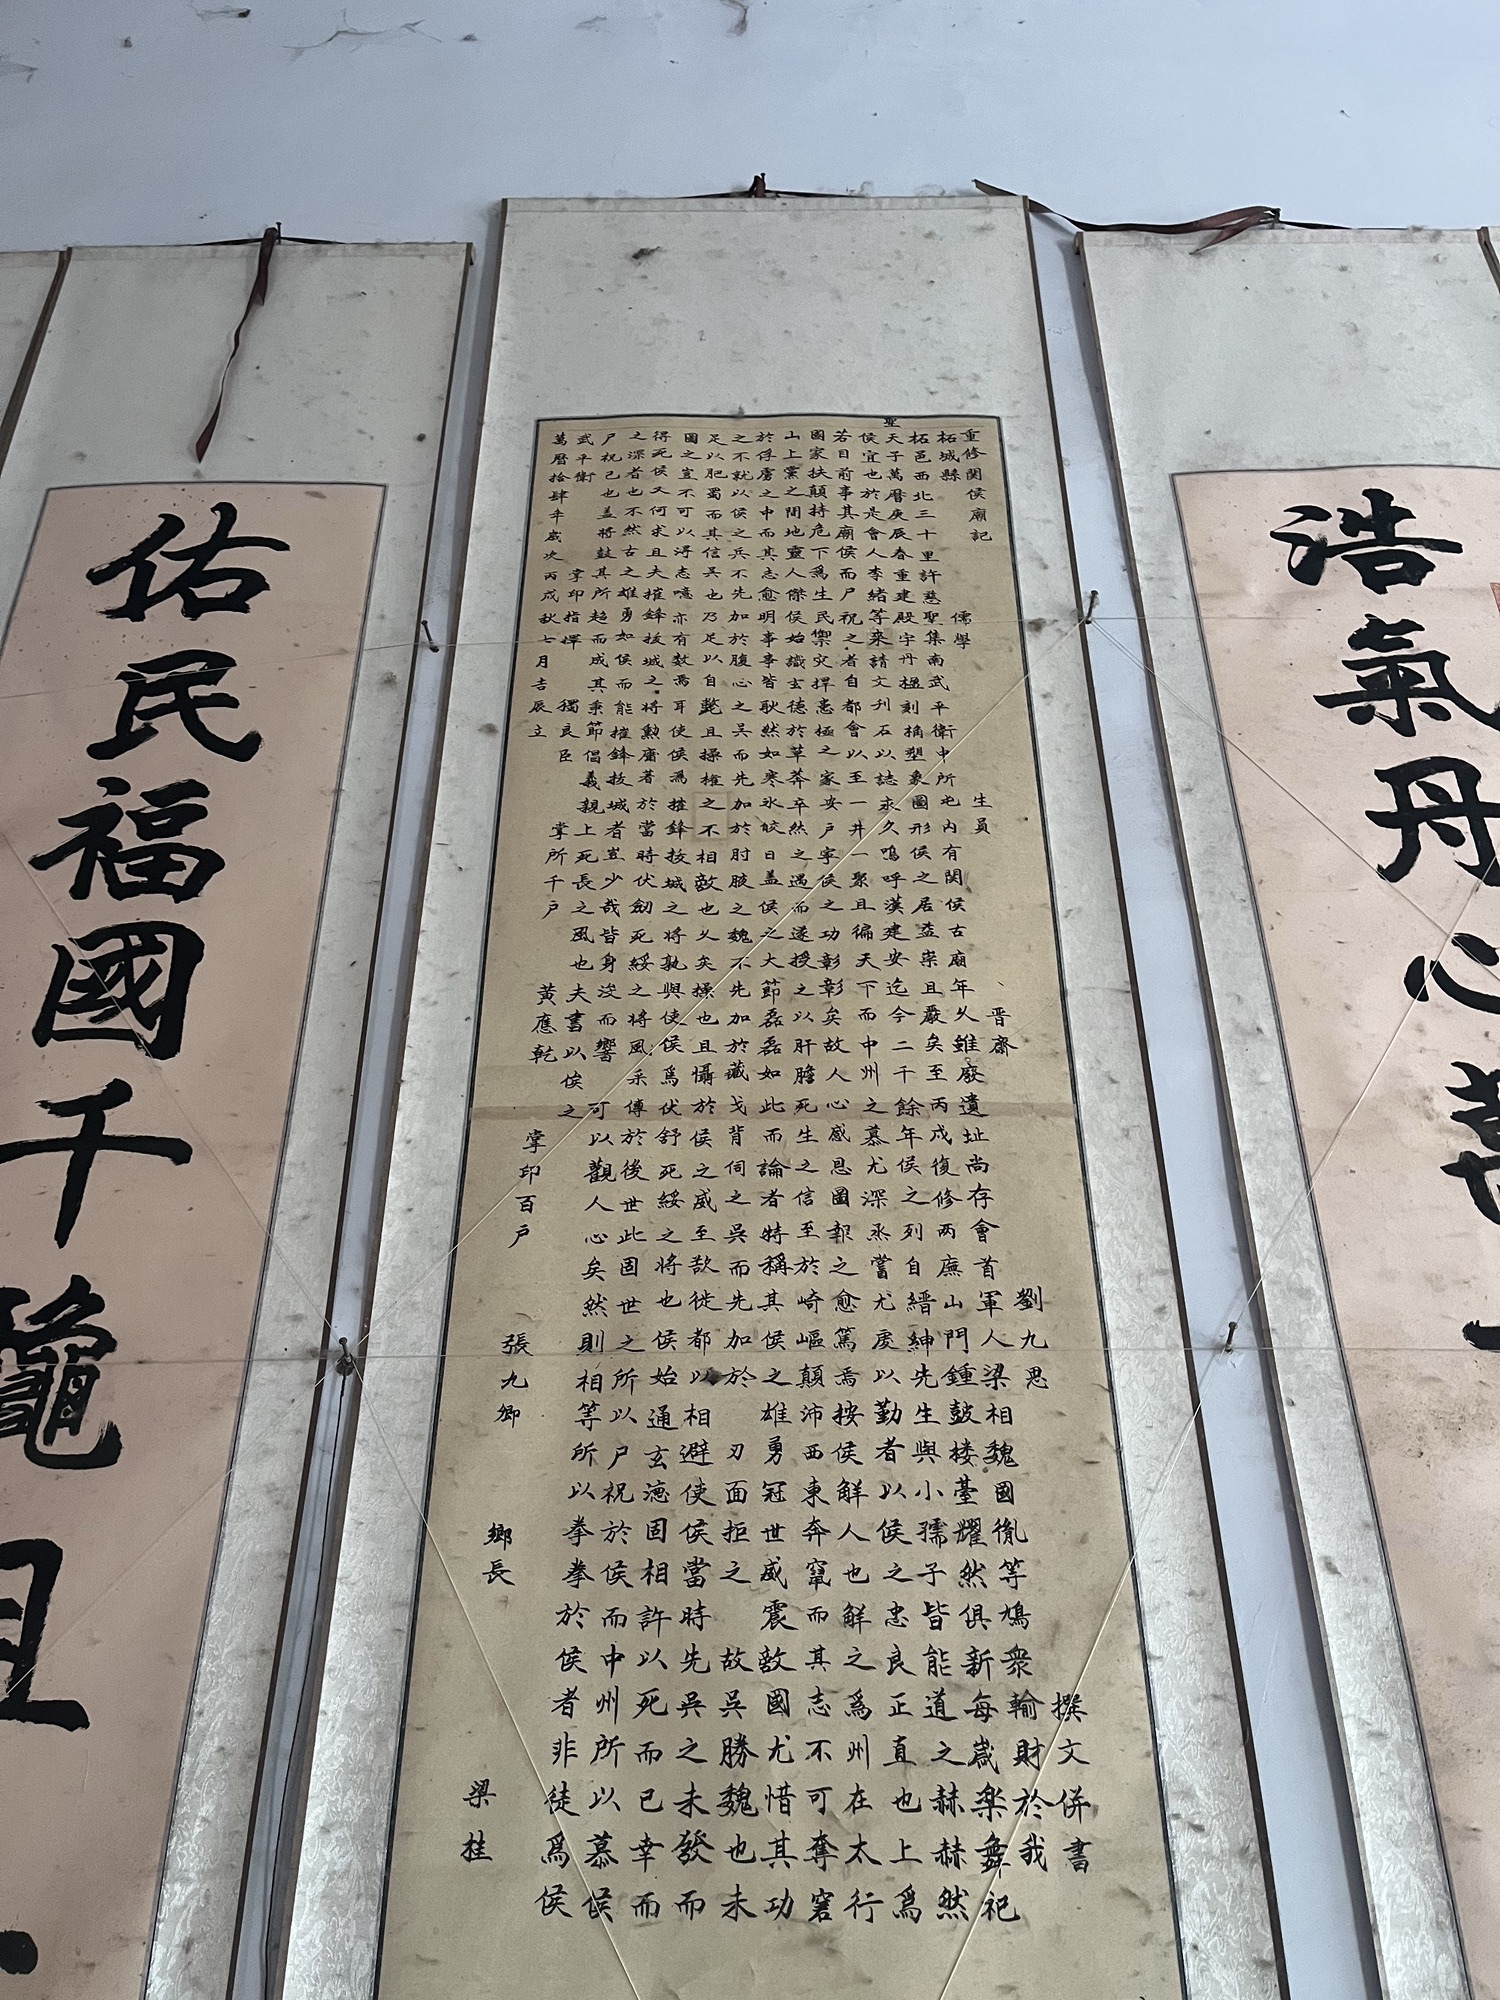 浩氣丹心萬
重修関侯廟記
柘城縣 儒學 生員 晉齋 劉九思 撰文併書
柘邑西北三十里許慈聖集南武平衛中所屯內有関侯古廟年久雖廢遺址尚存會首軍人梁相魏國胤等鳩衆輸財於我
聖天子萬曆庚辰春重建殿宇丹楹刻桷塑象圖形侯之居益崇且嚴矣至丙戌復修兩廡山門鍾皷楼臺耀然俱新每歲楽舞祀
侯宜也於是會人李緒等來請文刊石以誌永久嗚呼漢建安迄今二千餘年侯之列自縉紳先生與小孺子皆能道之赫赫然
若目前事其廟侯而尸祝之者自都會以至一井一聚且徧天下而中州之慕尤深烝嘗尤虔以勤者以侯之忠良正直也上爲
國家扶顛持危下爲生民禦灾捍患極之家安戶寧侯之功彰彰矣故人心感恩圖報之愈篤焉按侯解人也解之爲州在太行
山上黨之間地靈人傑侯始識玄德於草莽卒然之遇而遂授之以肝膽死生之信至於崎嶇顛沛西東奔竄而其志不可奪窘
於俘虜之中而其志愈明事事皆耿然如寒氷皎日盖侯之大節磊磊如此而論者特稱其侯之雄勇冠世威震敵國尤惜其功
之不就以侯之兵不先加於腹心之吳而先加於肘腋之魏不先加於藏戈背伺之吳而先加於刃面拒之故吳勝魏也未
足以肥蜀而其信吳也乃足以自斃且操權之不相敵也久矣操也且懾於侯之威至欲徙都以相避使侯當時先吳之未發而
圖之豈不可以得志噫亦有数焉耳使侯為摧鋒拔城之將孰與使侯爲伏舒死綏之將也侯始通玄德固相許以死而已幸而
得死侯又何求且夫摧鋒拔城之將勲庸著於當時伏劒死綏之將風采傳於後世此固世之所以尸祝於侯而中州所以慕侯
之深者也不然古之雄勇如侯而能摧鋒拔城者豈少哉皆身沒而響可以觀人心矣然則相等所以拳拳於侯者非徒爲侯
尸祝己也盖將鼓其所趨而成其秉節倡義親上死長之風也夫書以俟之
武平衛 掌印指揮 獨良臣 掌所千戶 黃應乾 掌印百戶 張九卿 鄉長 梁桂
萬曆拾肆年歲次丙戌秋七月吉辰立
佑民福國千龝